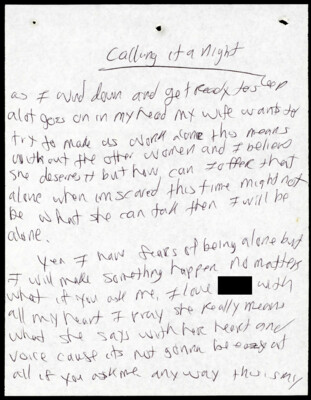 Calling it a night
as I wind down and get ready to sleep
alot goes on in my head my wife wants to
try to make us work alone this means
without the other women and I believe
she deserves it but how can I offer that
alone when im scared this time might not
be what she can take then I will be
alone.
Yea I have fears of being alone but
I will make something happen no matters
what if you ask me, I love with
all my heart I pray she really means
what she says with her heart and
voice cause its not gonna be easy at
all if you ask me any way this is my